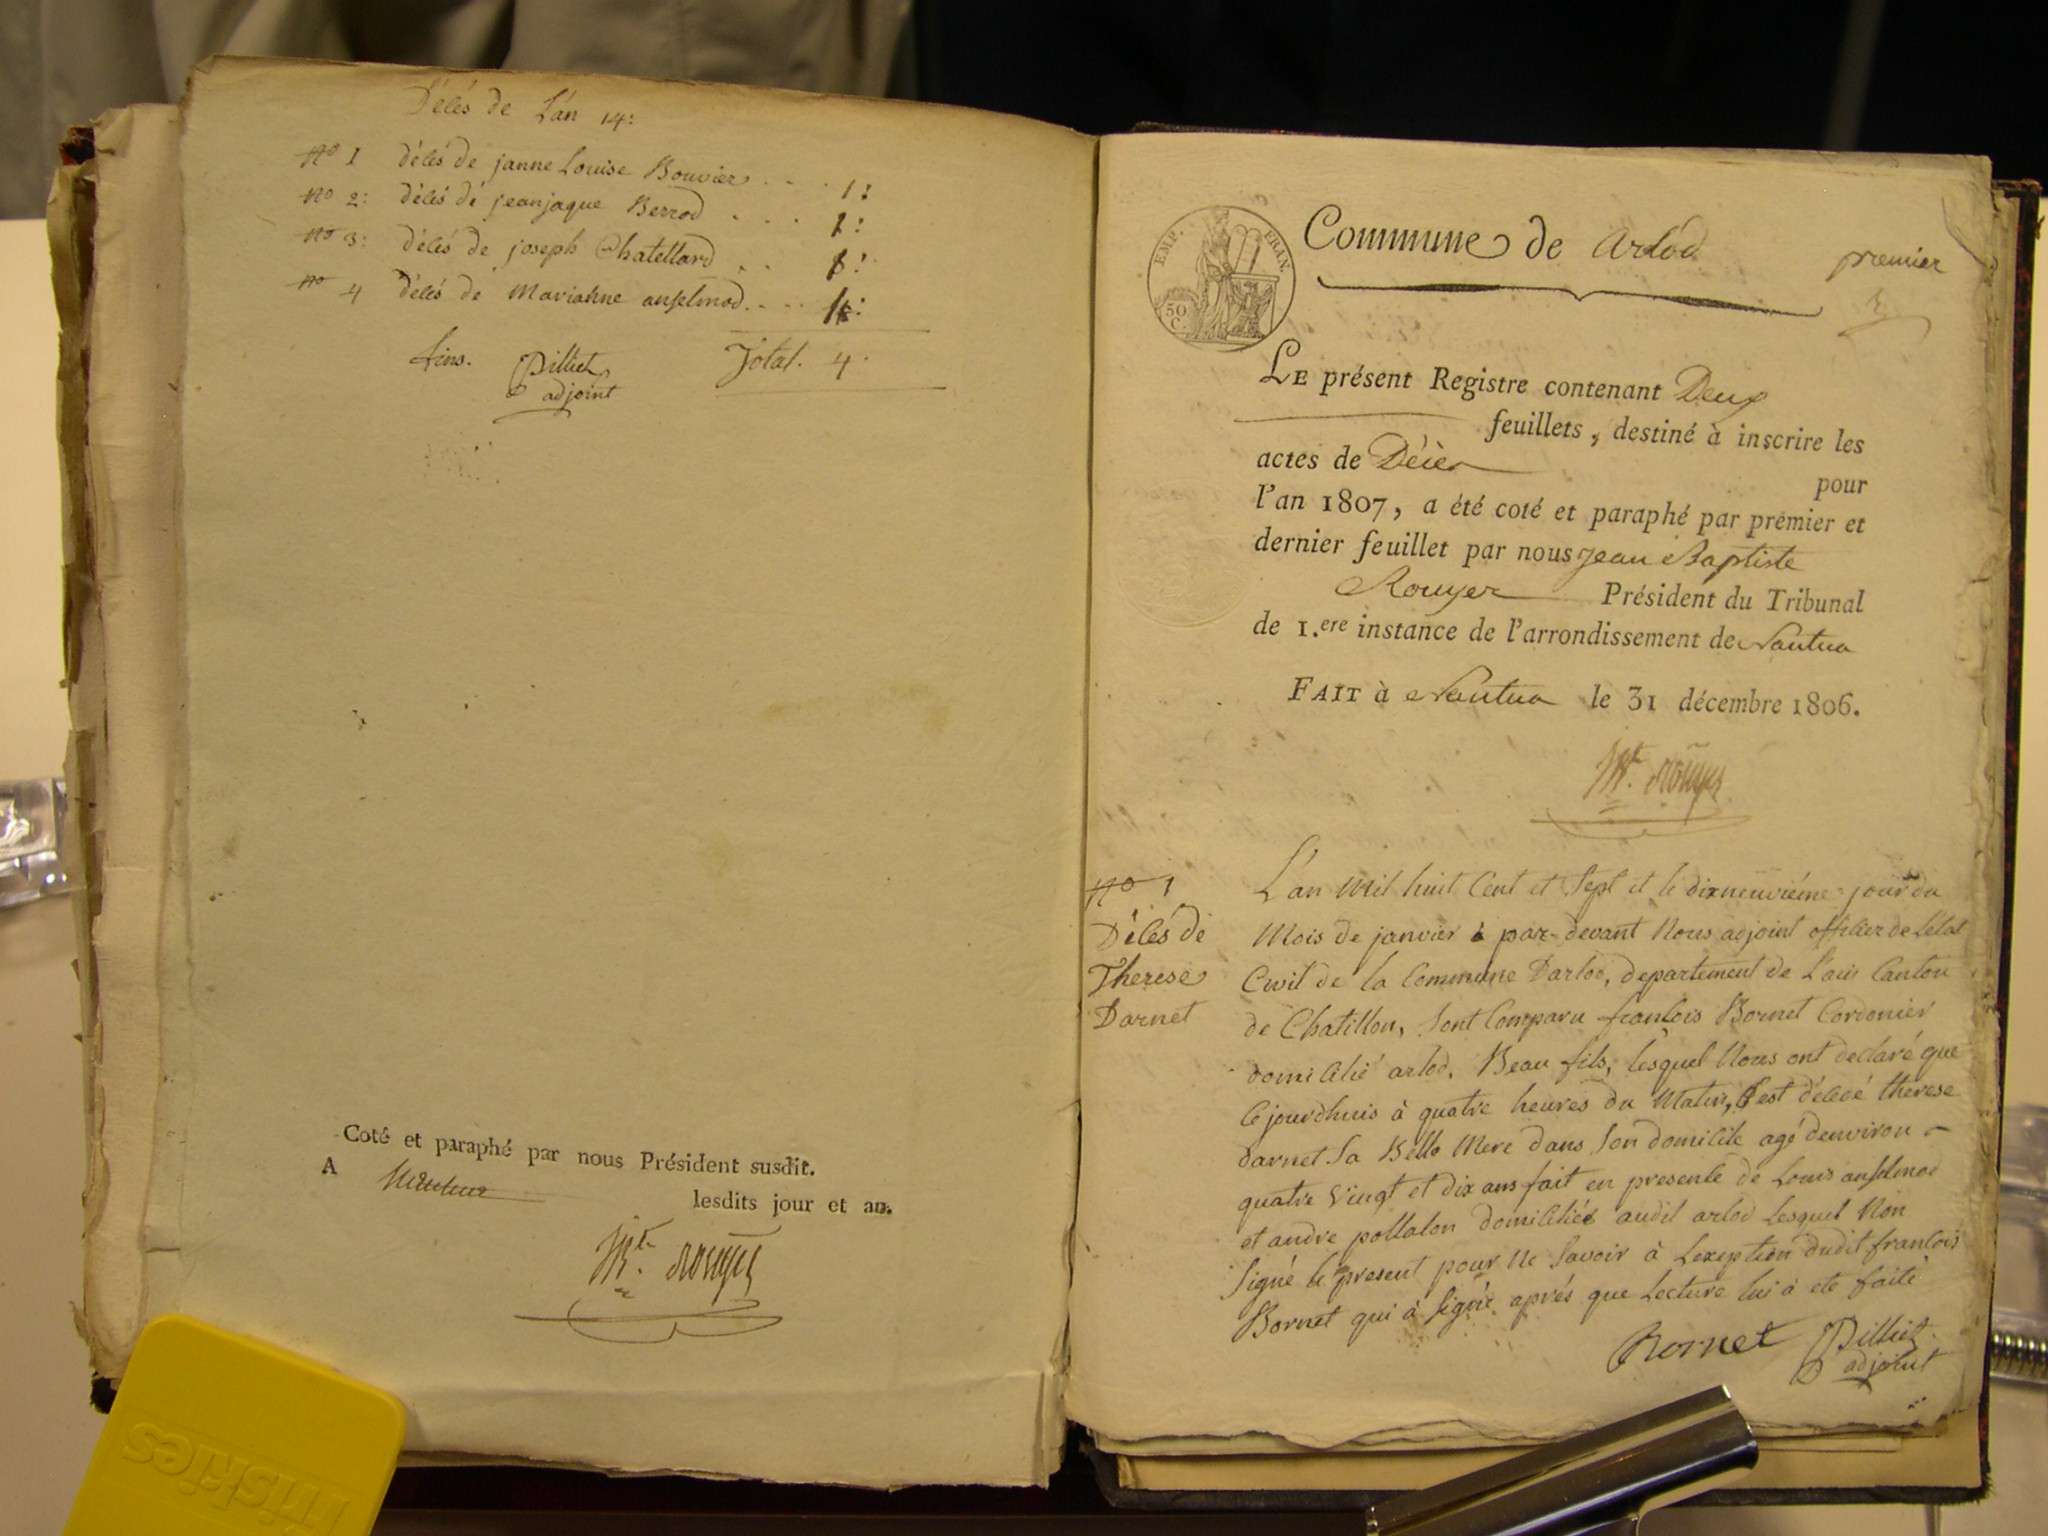 Décés de L'an 14:
No 1 décés de janne Louise Bouvier . . . 1:
No 2: décés de jeanjaque Berrod . . . 1:
No 3: décés de joseph Chatellard . . 1:
No 4 décés de Marianne anselmod . . . 1:
fins. Pilliet Total. 4.
adjoint
Coté et paraphé par nous Président susdit.
A Nantua
lesdits jour et an.
Rouyer
EMP. FRAN.
50 C.
Commune de Arlod
premier
LE présent Registre contenant Deux
feuillets, destiné à inscrire les
actes de Décès
pour
l'an 1807, a été coté et paraphé par premier et
dernier feuillet par nous Jean Baptiste
Rouyer Président du Tribunal
de 1.ere instance de l'arrondissement de Nantua
FAIT à Nantua le 31 décembre 1806.
Rouyer
No 1
Décés de
Therese
Darnet
L'an Mil huit Cent et Sept et le dixneuviéme jour du
Mois de janvier par-devant Nous adjoint officier de Letat
Civil de la Commune Darlod, departement de L'ain Canton
de Chatillon, Sont Comparu francois Bornet Cordonier
domicilié arlod, Beau fils, lesquel Nous ont declaré que
Cejourdhuis à quatre heures du Matin, Est décedé therese
darnet Sa Belle Mere dans Son domicile agé denviron
quatre Vingt et dix ans fait en presence de Louis anselmod
et andre pollaton domiciliés audit arlod Lesquel Non
Signé le present pour Ne Savoir à Lexeption dudit francois
Bornet qui à Signé. aprés que Lecture lui à ete faite
Bornet Pilliet
adjoint
friskies